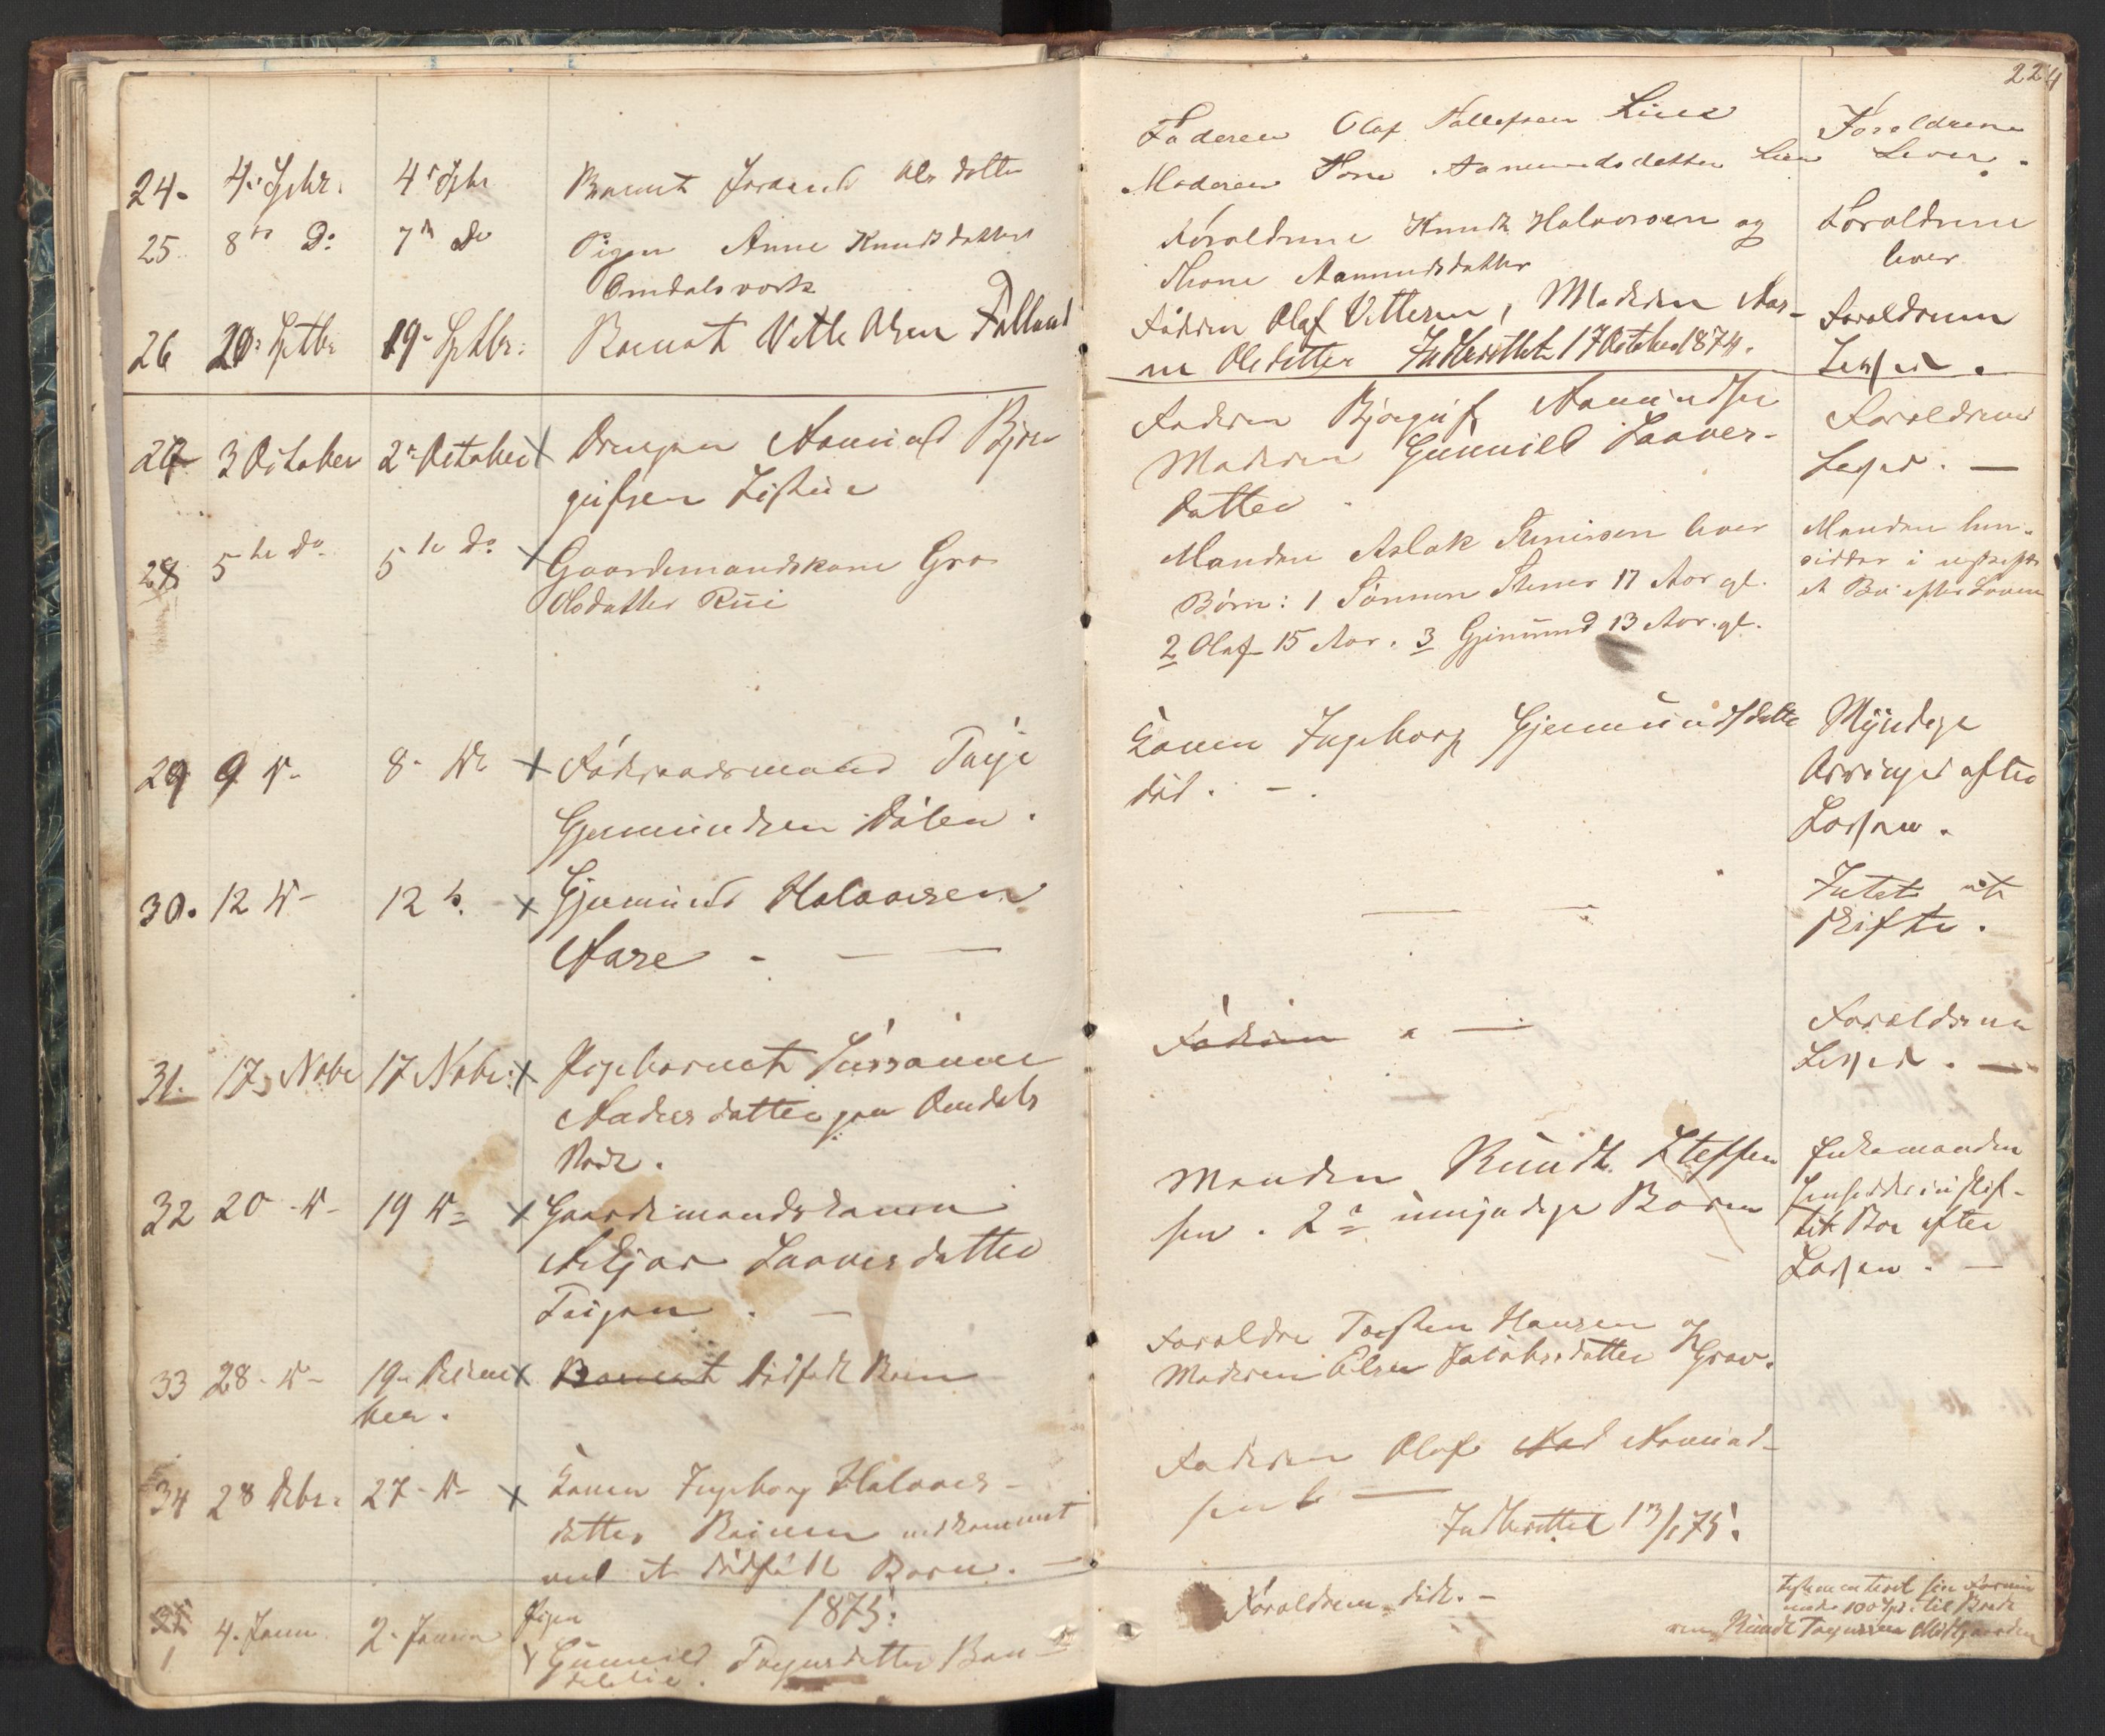 224
24. 4de Sptbr. 4de Sptbr Barnet Jorand Ols datter
Faderen Olaf Tallefsen Lien
Moderen Tone Aamundsdatter Lien
Forældrene
Lever.
25. 8de Do 7de Do Pigen Anne Knudsdatter
Omdalsværk
Forældrene Knudt Halvorsen og
Thone Aamundsdatter
Forældrene
lever
26 20de Sptbr 19de Sptbr. Barnet Vetle Olsen Falland
Faderen Olaf Vetlesen, Moderen Aas-
ne Olsdatter Indberettet 17 October 1874.
Forældrene
Lever.
27 3 October 2de October x Drengen Aamund Bjøn
gufsen
Faderen Bjørguf Aamundsen
Moderen Gunnild Laavers-
datter
Forældrene
Lever. —
28 5te do 5te do x Gaardmandskone Gro
Olsdatter Rui
Manden Aslak Steniersen lever
Børn: 1 Sønnen Stener 17 Aar gl.
2 Olaf 15 Aar. 3 Gjermund 13 Aar. gl.
Manden hen-
sidder i uskiftet
Bo efter Loven
29 9 d- 8- d- x Føderaadsmand Tarje
Gjermundsen Dalen.
Konen Ingeborg Gjermundsdatter
død. -.
Myndige
Arvinger efter
Loven.
30. 12 d- 12 d. x Gjermund Halvorsen
Aase - — —
Intet at
skifte.
31. 17 Nobr 17 Nobr. x Pigebarnet Susanne
Andersdatter paa Omdals
Værk.
Faderen
Forældrene
Lever. —
32 20 -d- 19 d- x Gaardmandskonen
Laaversdatter
Manden Knudt Steffen
sen. 2de umyndige Børn
Enkemanden
hensidder i uskif-
tet Boe efter
Loven. —
33 28 -d- 19de Decem x Barnet dødfødt Barn
ber.
Forældre Torsten Hansen og
Moderen Olsen Jakobsdatter Grav.
34 28 Debr. 27- d- x Konen Ingeborg Halvors-
datter nedkommet
med et dødfødt Barn. —
Faderen Olaf Aad Aamund-
sen
Indberettet 13/1 75.
1875.
35
1 4. Janu. 2. Janua Pigen
x Gunnild Targusdatter Ban
Forældrene døde. -
testamenteret sin Formue
100 Spd. til Brode
ren Knudt Targusen Midtgaarden